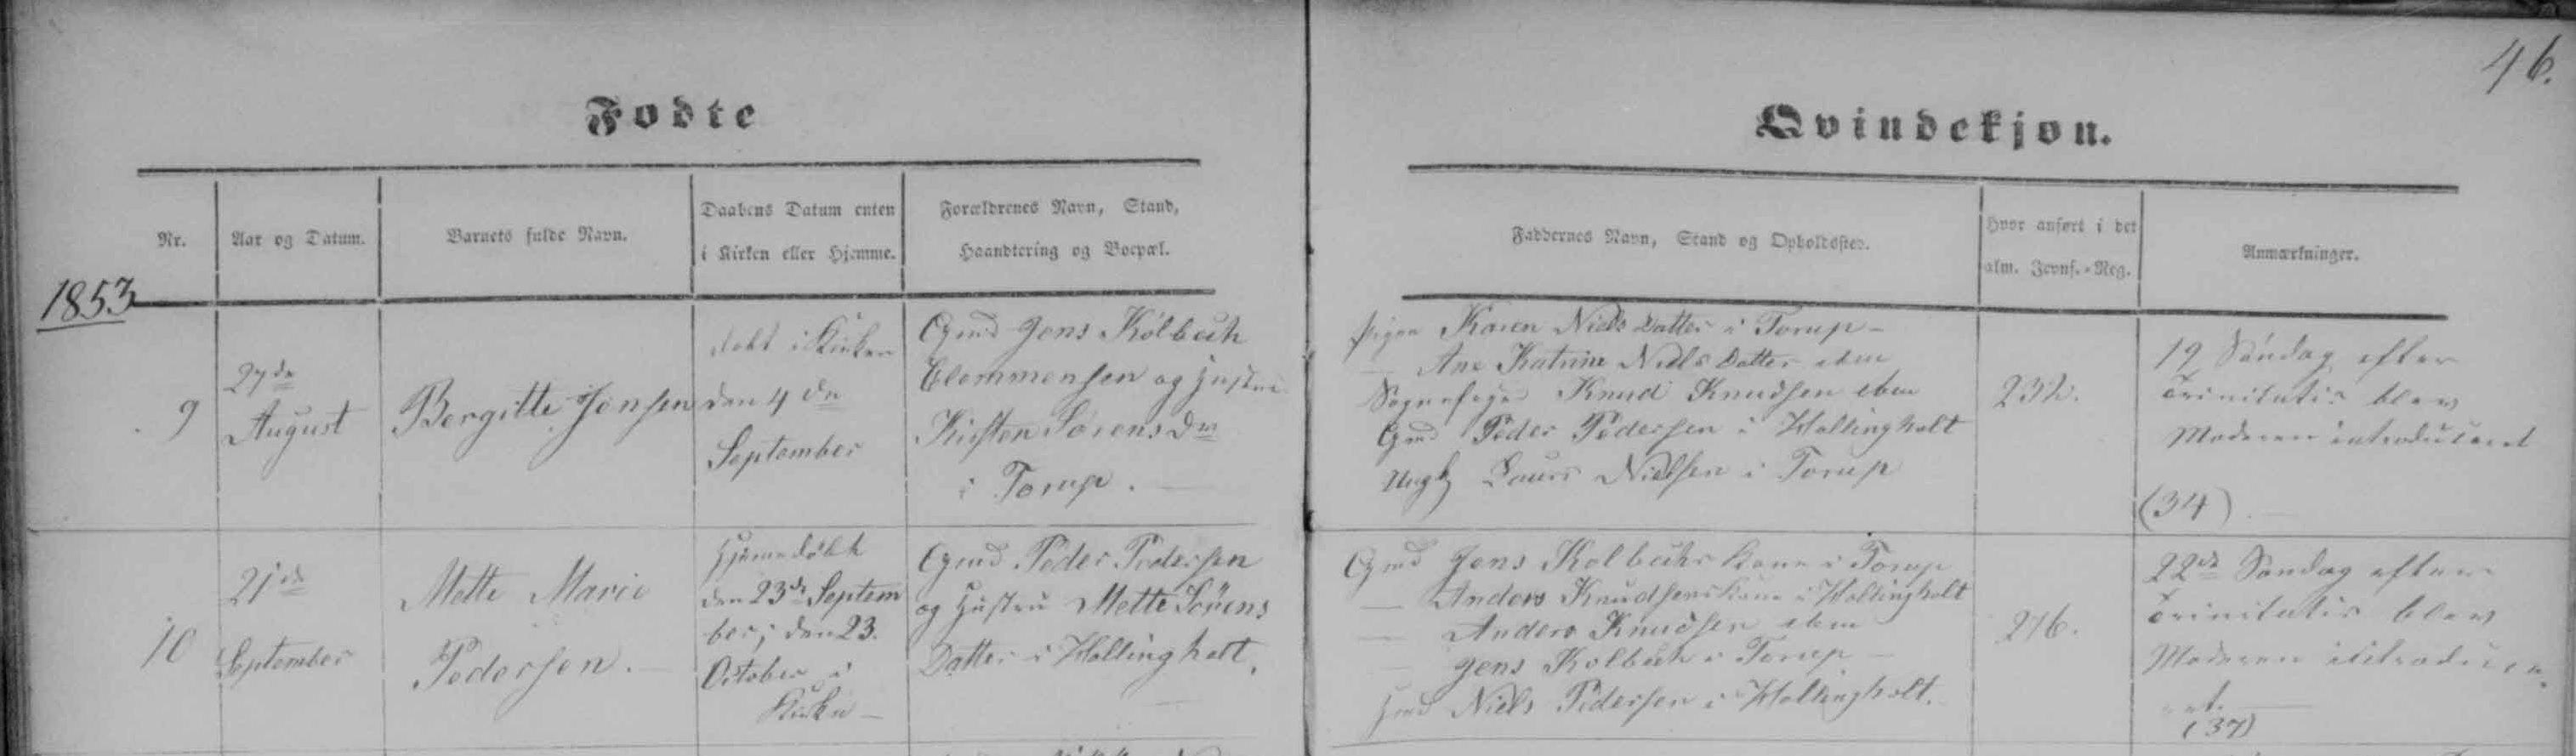 46.
Fødte
Qvindekjøn.
Nr.
Aar og Datum.
Barnets fulde Navn.
Daabens Datum enten
i Kirken eller Hjemme.
Forældrenes Navn, Stand,
Haandtering og Bopæl.
Faddernes Navn, Stand og Opholdssted.
Hvor anført i det
alm. Jevnf.-Reg.
Anmærkninger.
1853
9
27de
August
Bergitte Jensen
døbt i Kirken
den 4de
September
Gmd Jens Kolbech
Clemmensen og Hustru
Kirsten Sørens Dtr
i Torup.
Pigen Karen Niels Datter i Torup -
— Ane Katrine Niels Datter ibm
Sognefoged Knud Knudsen ibm
Gmd Peder Pedersen i Hallingholt
Ungk Laurs Nielsen i Torup
232.
19 Søndag efter
Trinitatis blev
Moderen introduceret
(34)
10
21de
September
Mette Marie
Pedersen.
Hjemmedøbt
den 23de Septem
ber; den 23.
October i
Kirken -
Gmd Peder Pedersen
og Hustru Mette Sørens
Datter i Hallingholt.
Gmd Jens Kolbechs Kone i Torup
— Anders Knudsens Kone i Hallingholt
— Anders Knudsen ibm
— Jens Kolbech i Torup -
Hmd Niels Pedersen i Hallingholt.
276.
22de Søndag efter
Trinitatis blev
Moderen introduce-
ret.
(37)